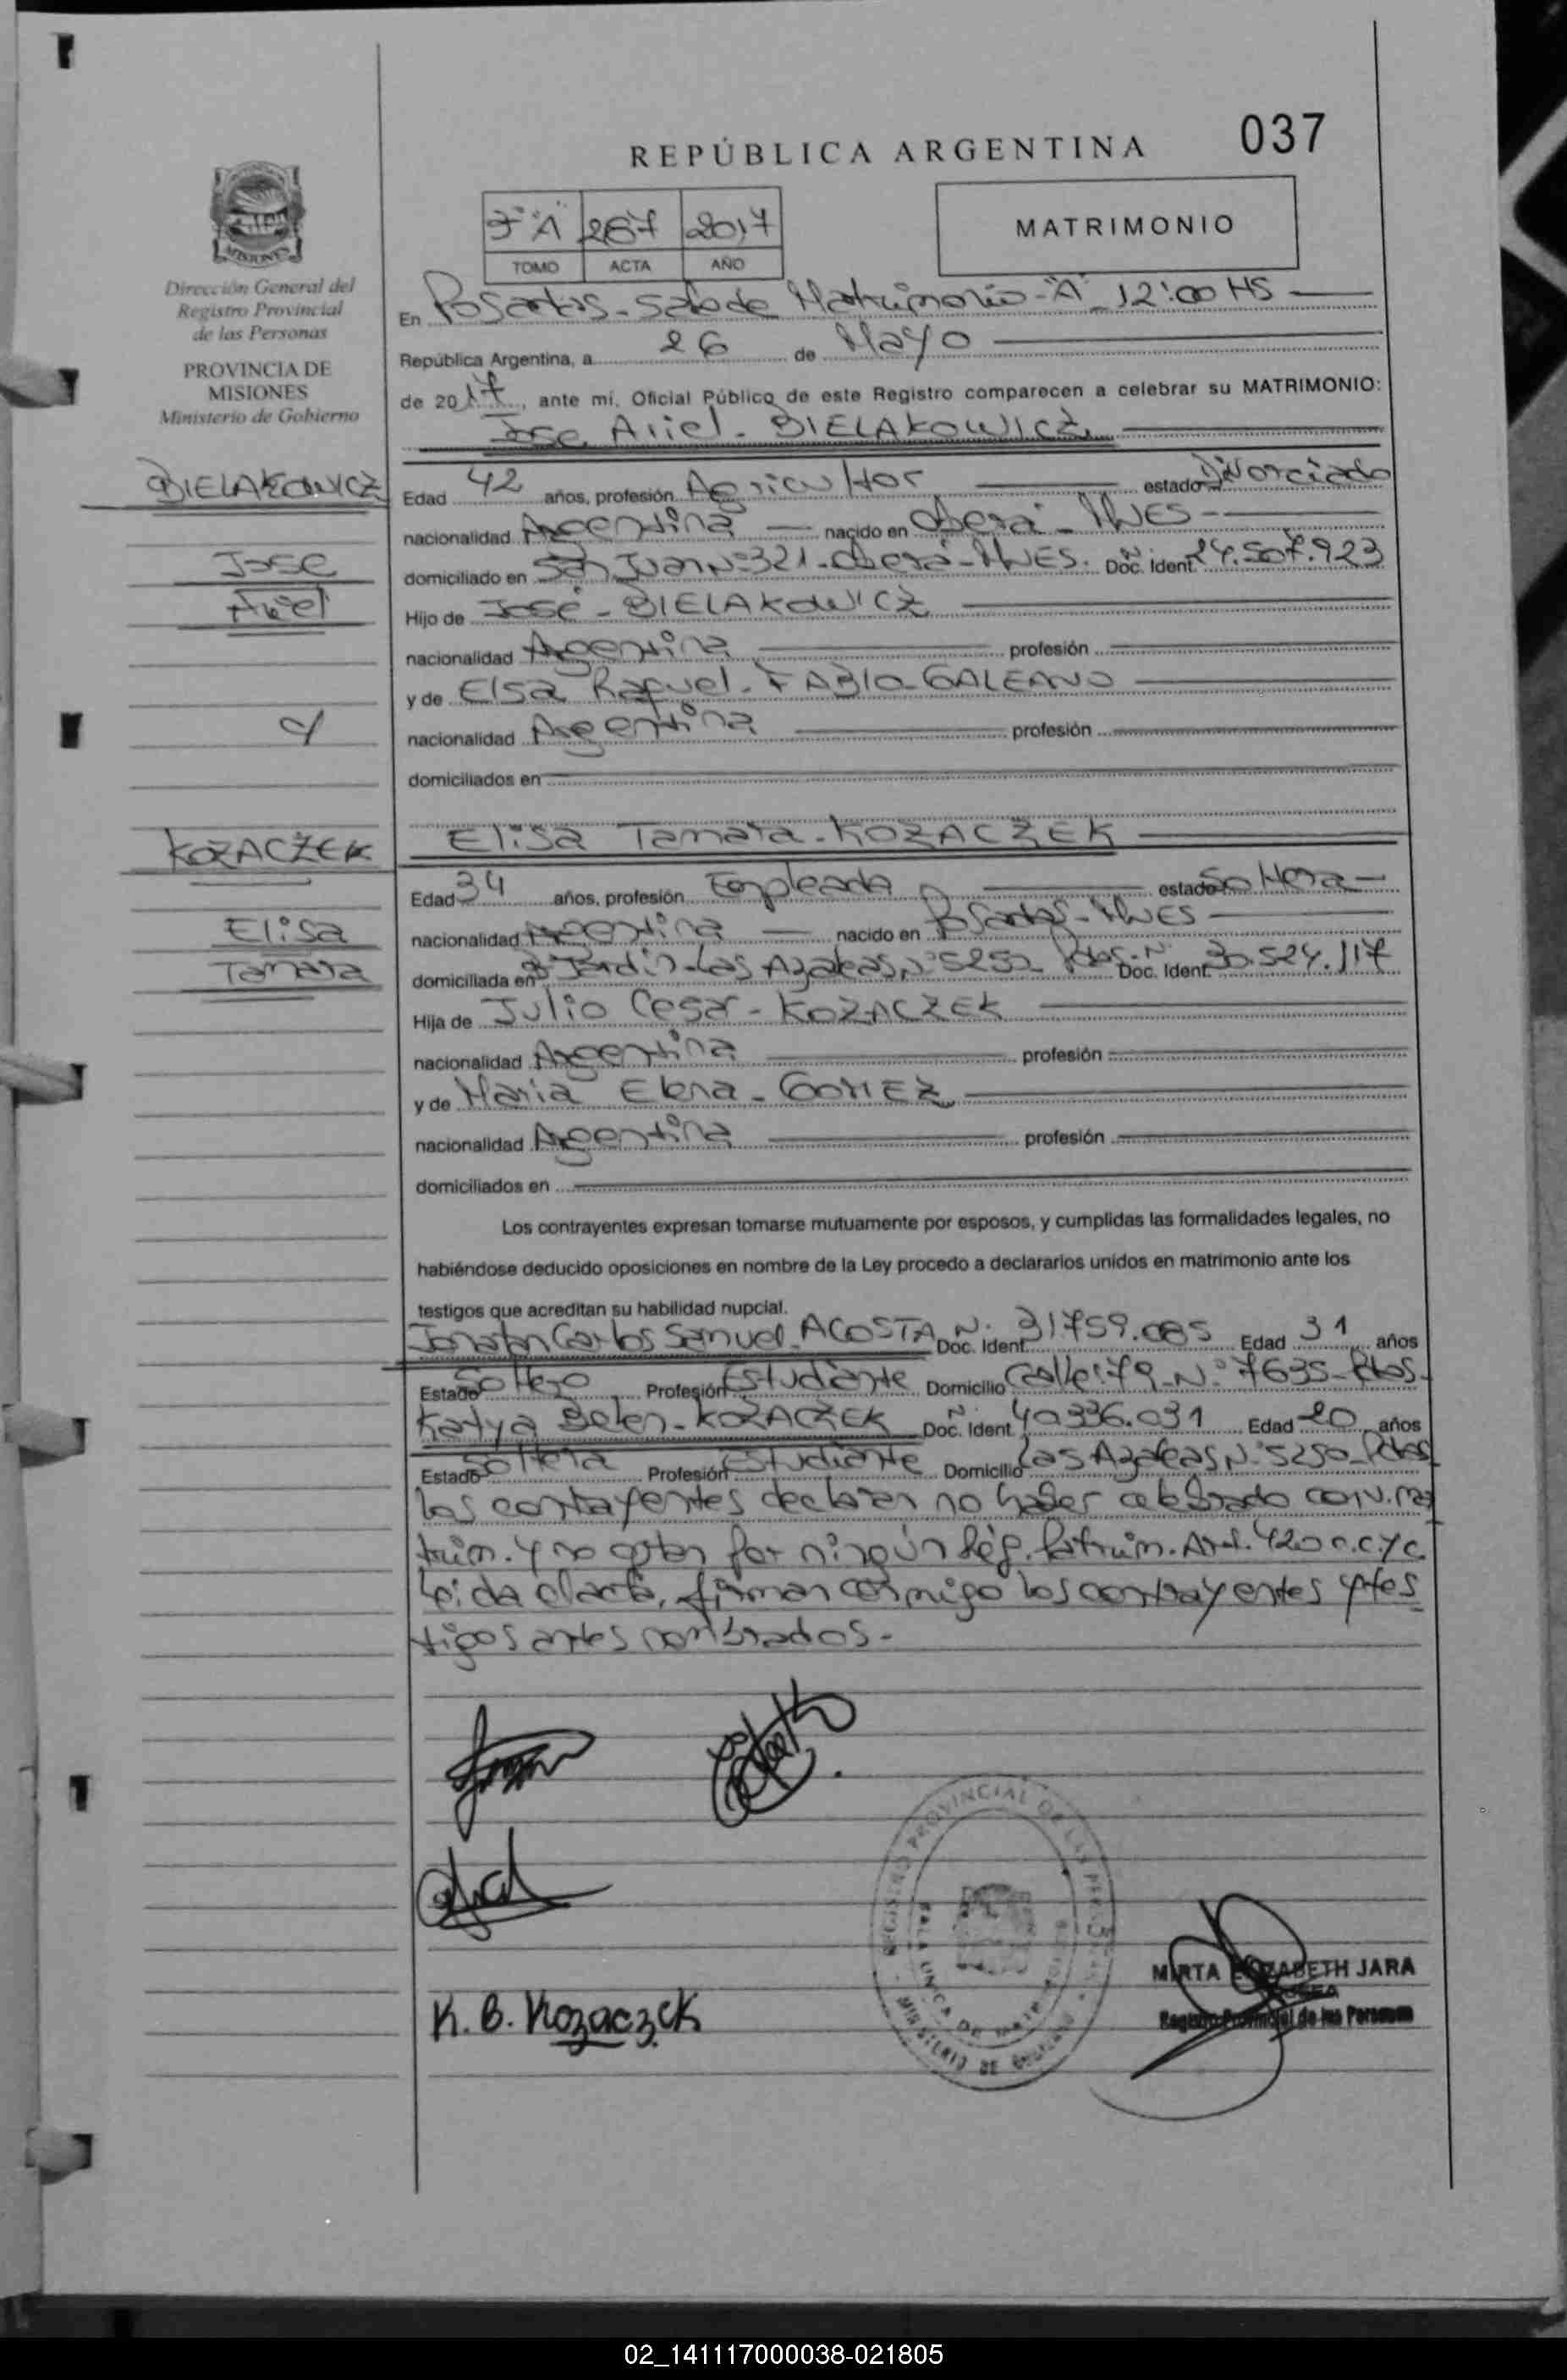 REPÚBLICA ARGENTINA
037
3º "A" 267 2017
TOMO ACTA AÑO
MATRIMONIO
MISIONES
Dirección General del
Registro Provincial
de las Personas
PROVINCIA DE
MISIONES
Ministerio de Gobierno
En Posadas - Sala de Matrimonio - "A" 12:00 HS
República Argentina, a 26 de Mayo
de 2017, ante mi, Oficial Público de este Registro comparecen a celebrar su MATRIMONIO:
Jose Ariel - BIELAKOWICZ
BIELAKOWICZ
Jose
Ariel
y
KOZACZEK
Elisa
Tamara
Edad 42 años, profesión Agricultor estado Divorciado
nacionalidad Argentina nacido en Oberá - MNES -
domiciliado en San Juan Nº 321 - Oberá - MNES. Doc. Ident. Nº 24.507.923
Hijo de José - BIELAKOWICZ
nacionalidad Argentina profesión
y de Elsa Raquel - FABIO - GALEANO
nacionalidad Argentina profesión
domiciliados en
Elisa Tamara - KOZACZEK
Edad 34 años, profesión Empleada estado Soltera -
nacionalidad Argentina nacido en Posadas - MNES
domiciliada en Bº Jardin - Las Azaleas Nº 5250 Pdas - Doc. Ident. Nº 30.524.117
Hija de Julio Cesar - KOZACZEK
nacionalidad Argentina profesión
y de Maria Elena - GOMEZ
nacionalidad Argentina profesión
domiciliados en
Los contrayentes expresan tomarse mutuamente por esposos, y cumplidas las formalidades legales, no
habiéndose deducido oposiciones en nombre de la Ley procedo a declararlos unidos en matrimonio ante los
testigos que acreditan su habilidad nupcial.
Jonatan Carlos Samuel - ACOSTA Doc. Ident. Nº 31759.085 Edad 31 años
Estado Soltero Profesión Estudiante Domicilio Calle: 79 - Nº 7635 - Pdas -
Katya Belen - KOZACZEK Doc. Ident. Nº 40336.031 Edad 20 años
Estado Soltera Profesión Estudiante Domicilio Las Azaleas Nº 5250 - Pdas
Los contrayentes declaran no haber celebrado conv. ma
trim. y no optan por ningún Rég. Patrim. Art. 420 c.c.y c.
Leída el acta, firman conmigo los contrayentes y tes
tigos antes nombrados. -
K. B. Kozaczek
REGISTRO PROVINCIAL DE LAS PERSONAS
SALA UNICA DE
MINISTERIO DE GOBIERNO
MIRTA ELIZABETH JARA
Registro Provincial de las Personas
02_141117000038-021805